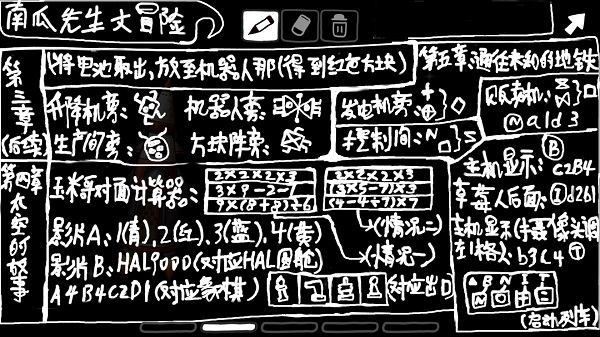 南瓜先生大冒险
第三章(后续)
(将电池取出,放至机器人那(得到红色方块)
升降机旁:
机器人旁:
生产间旁:
方块阵旁:
发电机旁:
控制间:N
第五章:通往未知的地铁
贩卖机:
N a1d3
第四章 太空的故事
玉米哥对面计算器:
2×2×2×3
3×9-2-7
9×(8+8)÷6
3×2×2×3
(3×5-7)×3
(4-4÷7)×7
(情况二)
(情况一)
影片A:1(青),2(红),3(蓝),4(黄)
影片B:HAL9000(对应HAL圆舱)
A4B4C2D1(对应象棋)
对应出口
B
主机显示:C2B4
草莓人后面:①d2b1
主机显示(手摄像头调
到1格):b3C4 T
A B N I T
(启动列车)